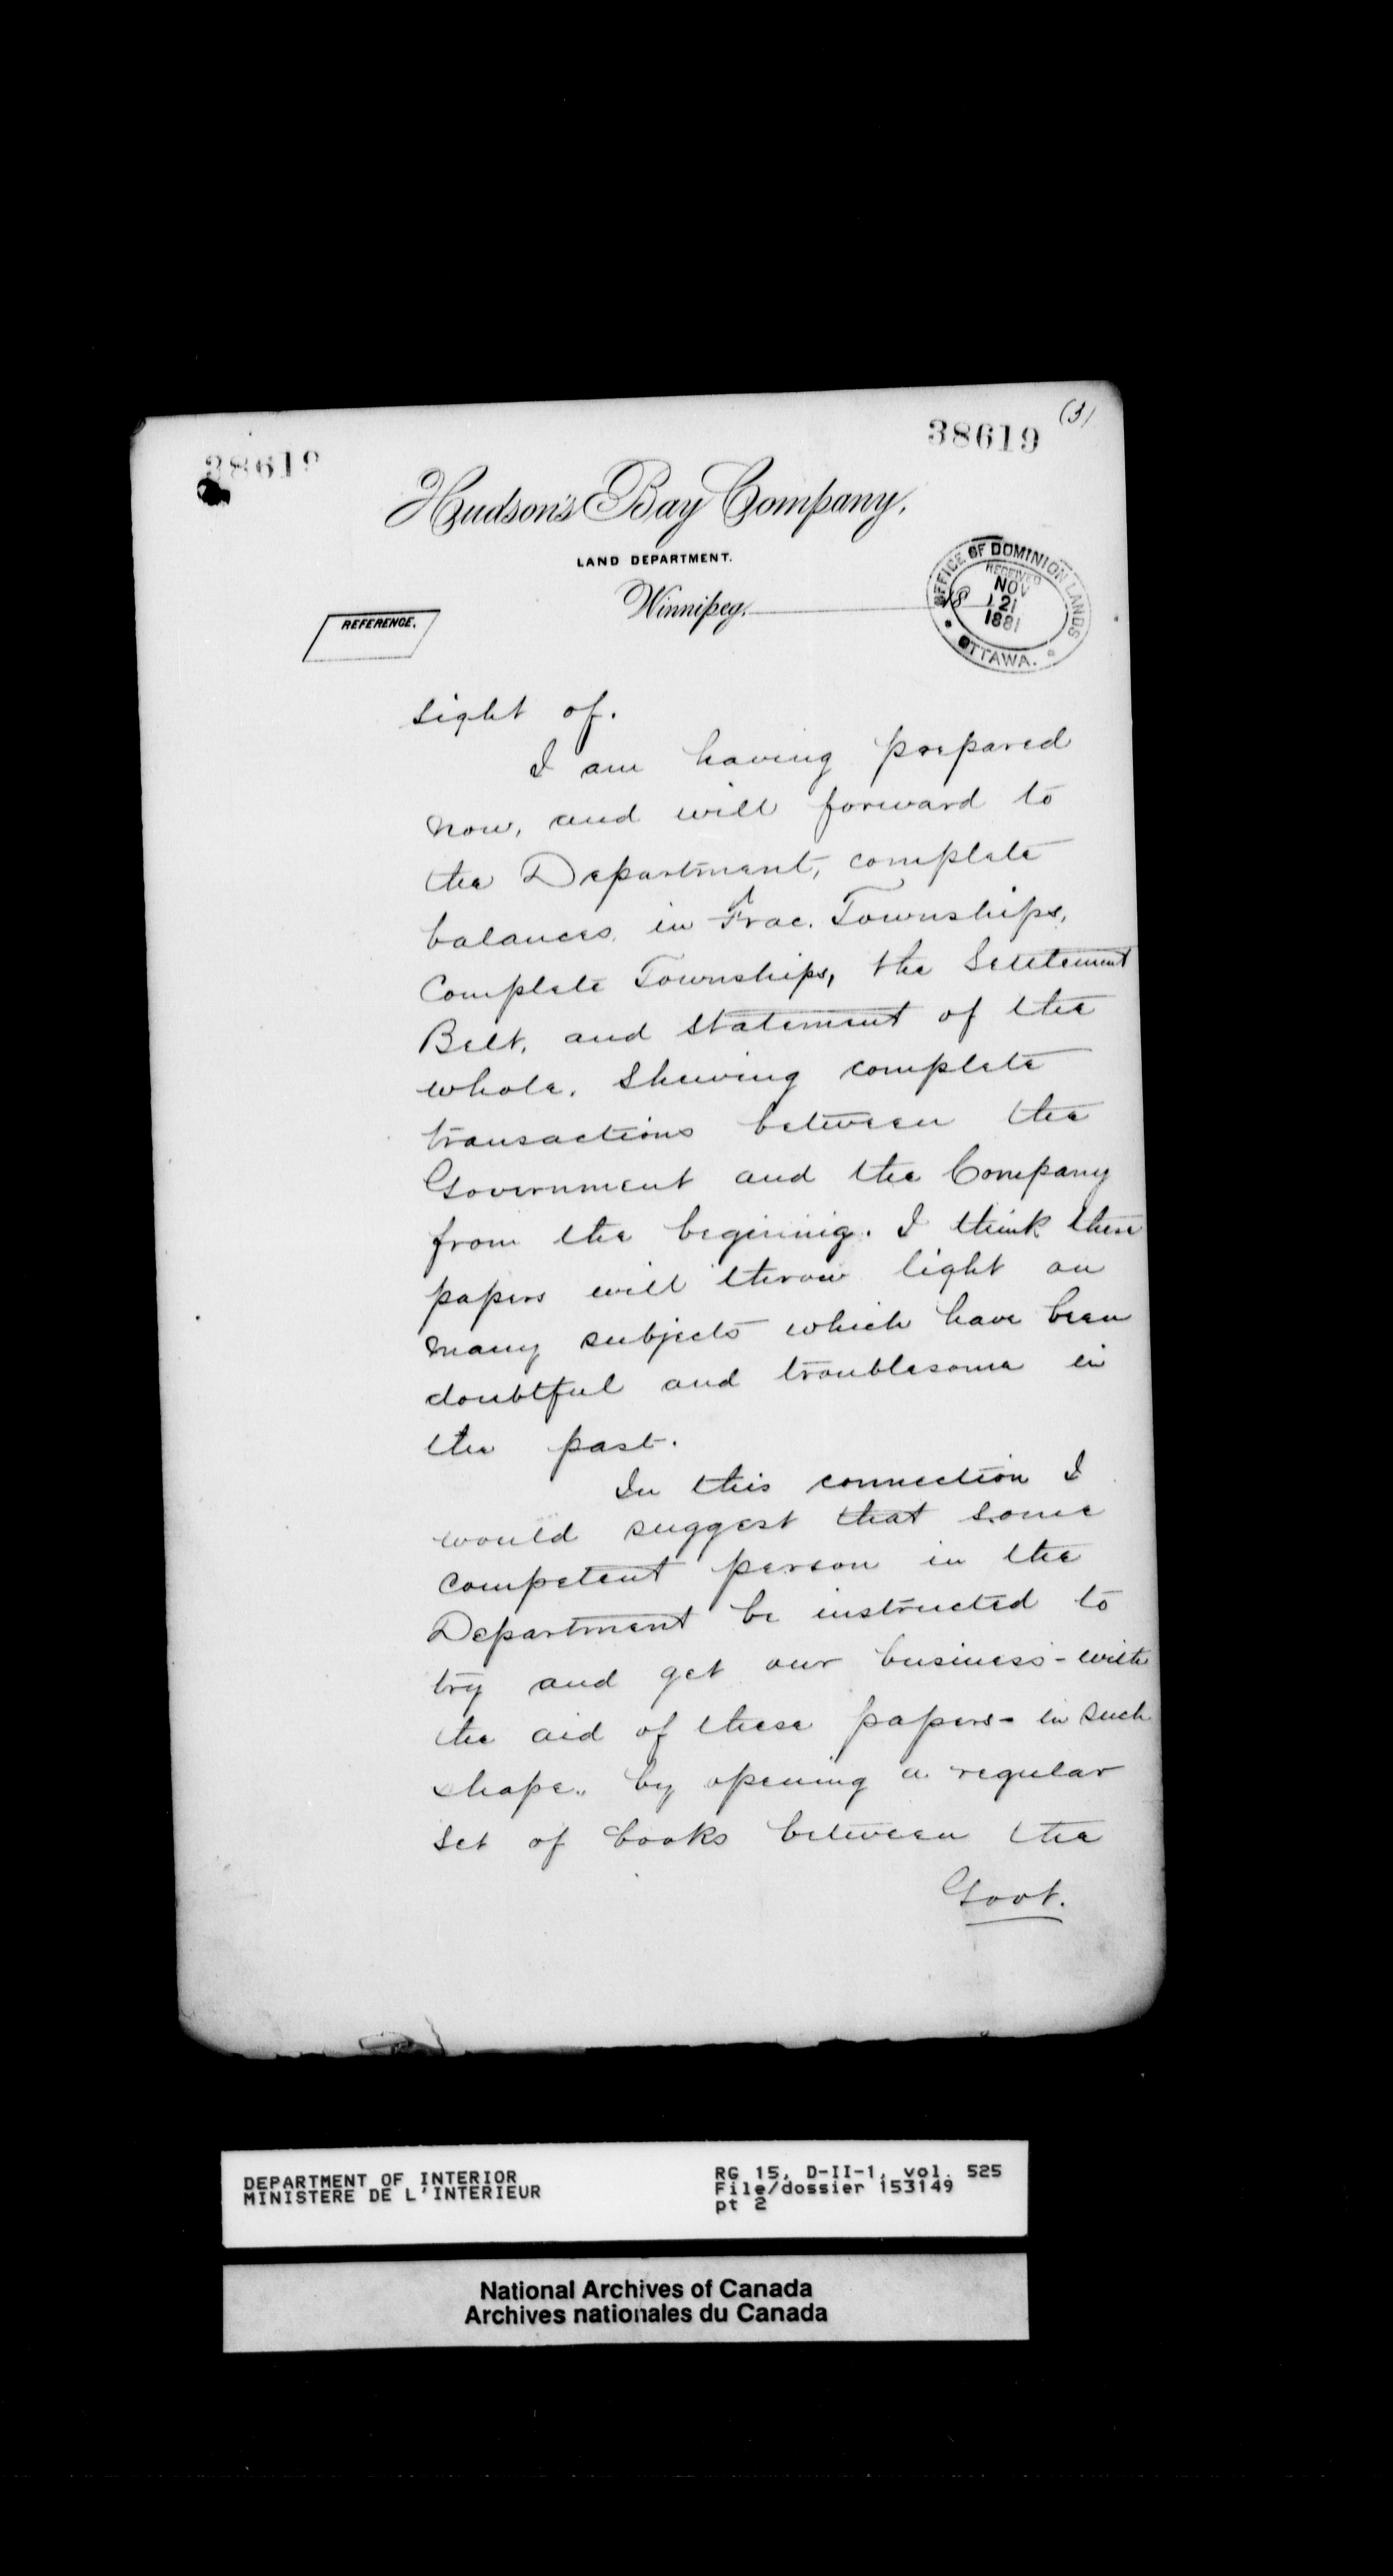 (3)
38619
38619
Hudson's Bay Company,
LAND DEPARTMENT.
Winnipeg, 18
OFFICE OF DOMINION LANDS
RECEIVED
NOV
21
1881
OTTAWA.
REFERENCE.
sight of.
I am having prepared
now, and will forward to
the Department, complete
balances in Frac. Townships,
Complete Townships, the Settlement
Belt, and statement of the
whole, shewing complete
transactions between the
Government and the Company
from the beginnig. I think these
papers will throw light on
many subjects which have been
doubtful and troublesome in
the past.
In this connection I
would suggest that some
competent person in the
Department be instructed to
try and get our business - with
the aid of these papers - in such
shape, by opening a regular
set of books between the
Govt.
DEPARTMENT OF INTERIOR
MINISTERE DE L'INTERIEUR
RG 15, D-II-1, vol. 525
File/dossier 153149
pt 2
National Archives of Canada
Archives nationales du Canada